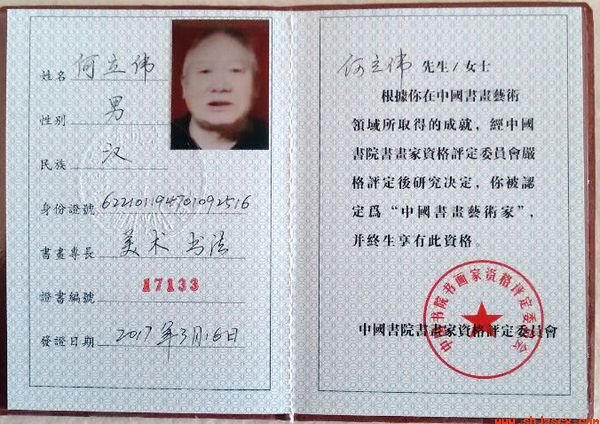 姓名 何立伟
性别 男
民族 汉
身份證號 622101194701092516
書畫專長 美术 书法
證書編號 17133
發證日期 2017年3月16日
何立伟 先生/女士
根據你在中國書畫藝術
領域所取得的成就，經中國
書院書畫家資格評定委員會嚴
格評定後研究決定，你被認
定爲“中國書畫藝術家”，
并終生享有此資格。
中国书院书画家资格评定委员会
中國書院書畫家資格評定委員會